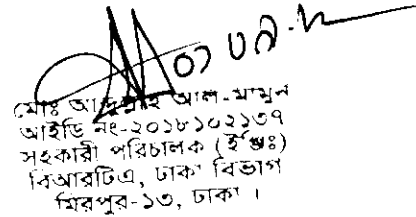 মোঃ আব্দুল্লাহ আল-মামুন
আইডি নং-২০১৮১০২১৩৭
সহকারী পরিচালক (ইঞ্জিঃ)
বিআরটিএ, ঢাকা বিভাগ
মিরপুর-১৩, ঢাকা ।